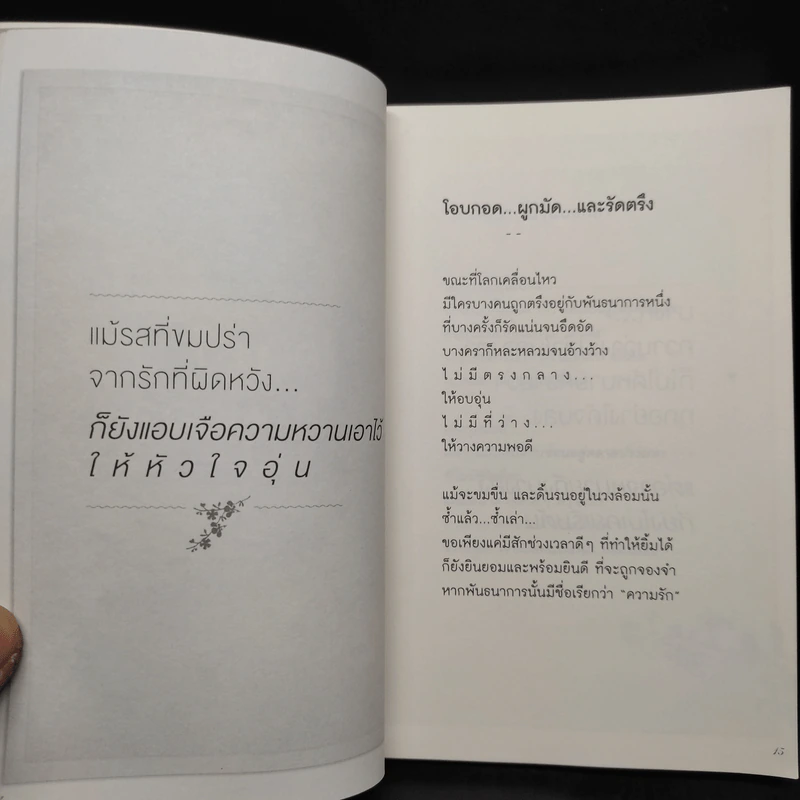 แม้รสที่ขมปร่า
จากรักที่ผิดหวัง...
ก็ยังแอบเจือความหวานเอาไว้
ให้หัวใจอุ่น
โอบกอด...ผูกมัด...และรัดตรึง
--
ขณะที่โลกเคลื่อนไหว
มีใครบางคนถูกตรึงอยู่กับพันธนาการหนึ่ง
ที่บางครั้งก็รัดแน่นจนอึดอัด
บางคราก็หละหลวมจนอ้างว้าง
ไม่มีตรงกลาง...
ให้อบอุ่น
ไม่มีที่ว่าง...
ให้วางความพอดี
แม้จะขมขื่น และดิ้นรนอยู่ในวงล้อมนั้น
ซ้ำแล้ว...ซ้ำเล่า...
ขอเพียงแค่มีสักช่วงเวลาดีๆ ที่ทำให้ยิ้มได้
ก็ยังยินยอมและพร้อมยินดี ที่จะถูกจองจำ
หากพันธนาการนั้นมีชื่อเรียกว่า "ความรัก"
15